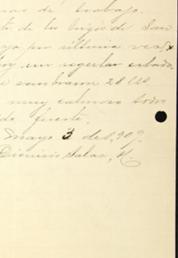 de trabajo.
de la Virgen de San
por ultima vez
un regular estado,
sembraron 28
muy caluroso todo
de fuerte.
Mayo 3 de 1,909.
Dionicio Salas, H.